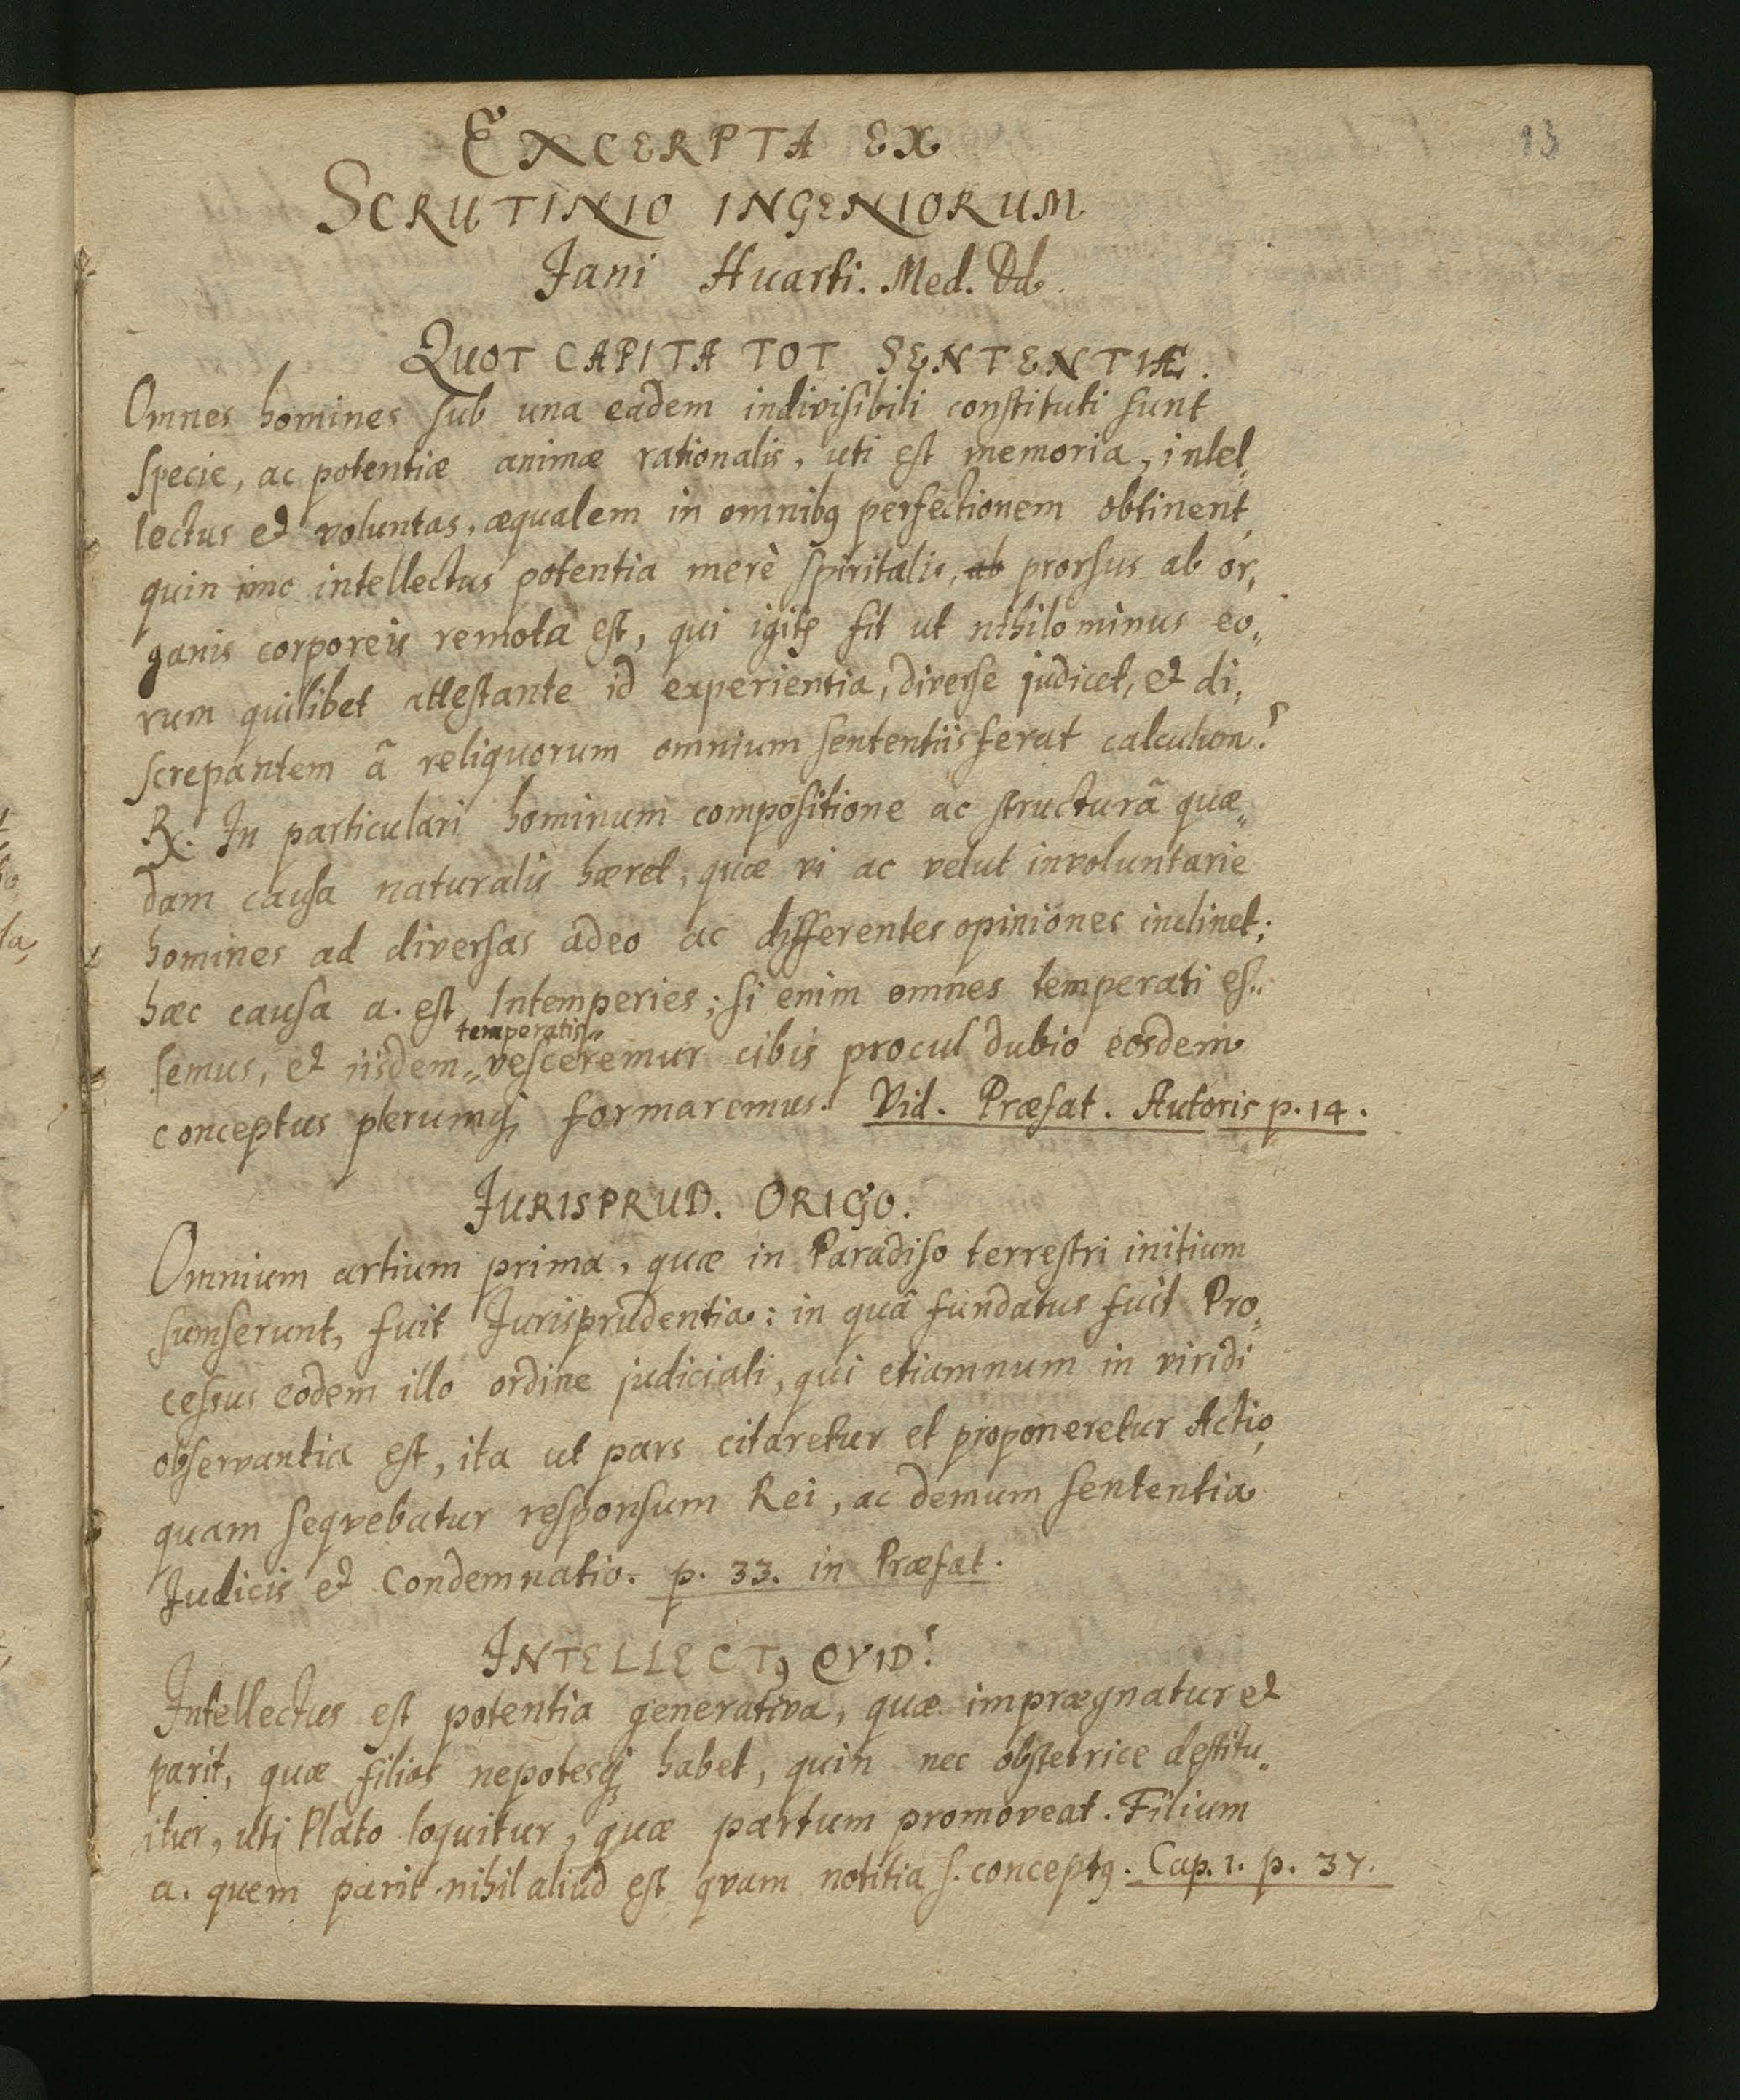 13
EXCERPTA EX
SCRUTINIO INGENIORUM
Jani Huarti. Med. Dd.
QUOT CAPITA TOT SENTENTIÆ.
Omnes homines sub una eadem indivisibili constituti sunt
specie, ac potentiæ animæ rationalis, uti est memoria, intel„
lectus et voluntas, æqualem in omnibq perfectionem obtinent,
quin imo intellectus potentia merè spiritalis, ab prorsus ab or„
ganis corporeis remota est, qui igitr fit ut nihilominus eo„
rum quilibet attestante id experientia, diverse judicet, et di„
screpantem ã reliquorum omnium sententiis ferat calculum?
℞. In particulari hominum compositione ac structurâ quæ„
dam causa naturalis hæret, quæ vi ac velut involuntarie
homines ad diversas adeo ac differentes opiniones inclinet;
hæc causa a. est Intemperies; si enim omnes temperati es„
temperatis„
semus, et iisdem „ vesceremur cibis procul dubio eosdem
conceptus plerumq; formaremus. Vid. Præfat. Autoris p. 14.
JURISPRUD. ORIGO.
Omnium artium prima, quæ in Paradiso terrestri initium
sumserunt, fuit Jurisprudentia: in quâ fundatus fuit Pro„
cessus eodem illo ordine judiciali, qui etiamnum in viridi
observantia est, ita ut pars citaretur et proponeretur Actio,
quam seqvebatur responsum Rei, ac demum sententia
Judicis et Condemnatio. p. 33. in Præfat.
INTELLECTꝰ QVID?
Intellectus est potentia generativa, quæ imprægnatur et
parit, quæ filios nepotesq; habet, quin nec obstetrice destitu„
itur, uti Plato loquitur, quæ partum promoveat. Filium
a. quem parit nihil aliud est qvam notitia s. conceptꝰ. Cap. 1. p. 37.